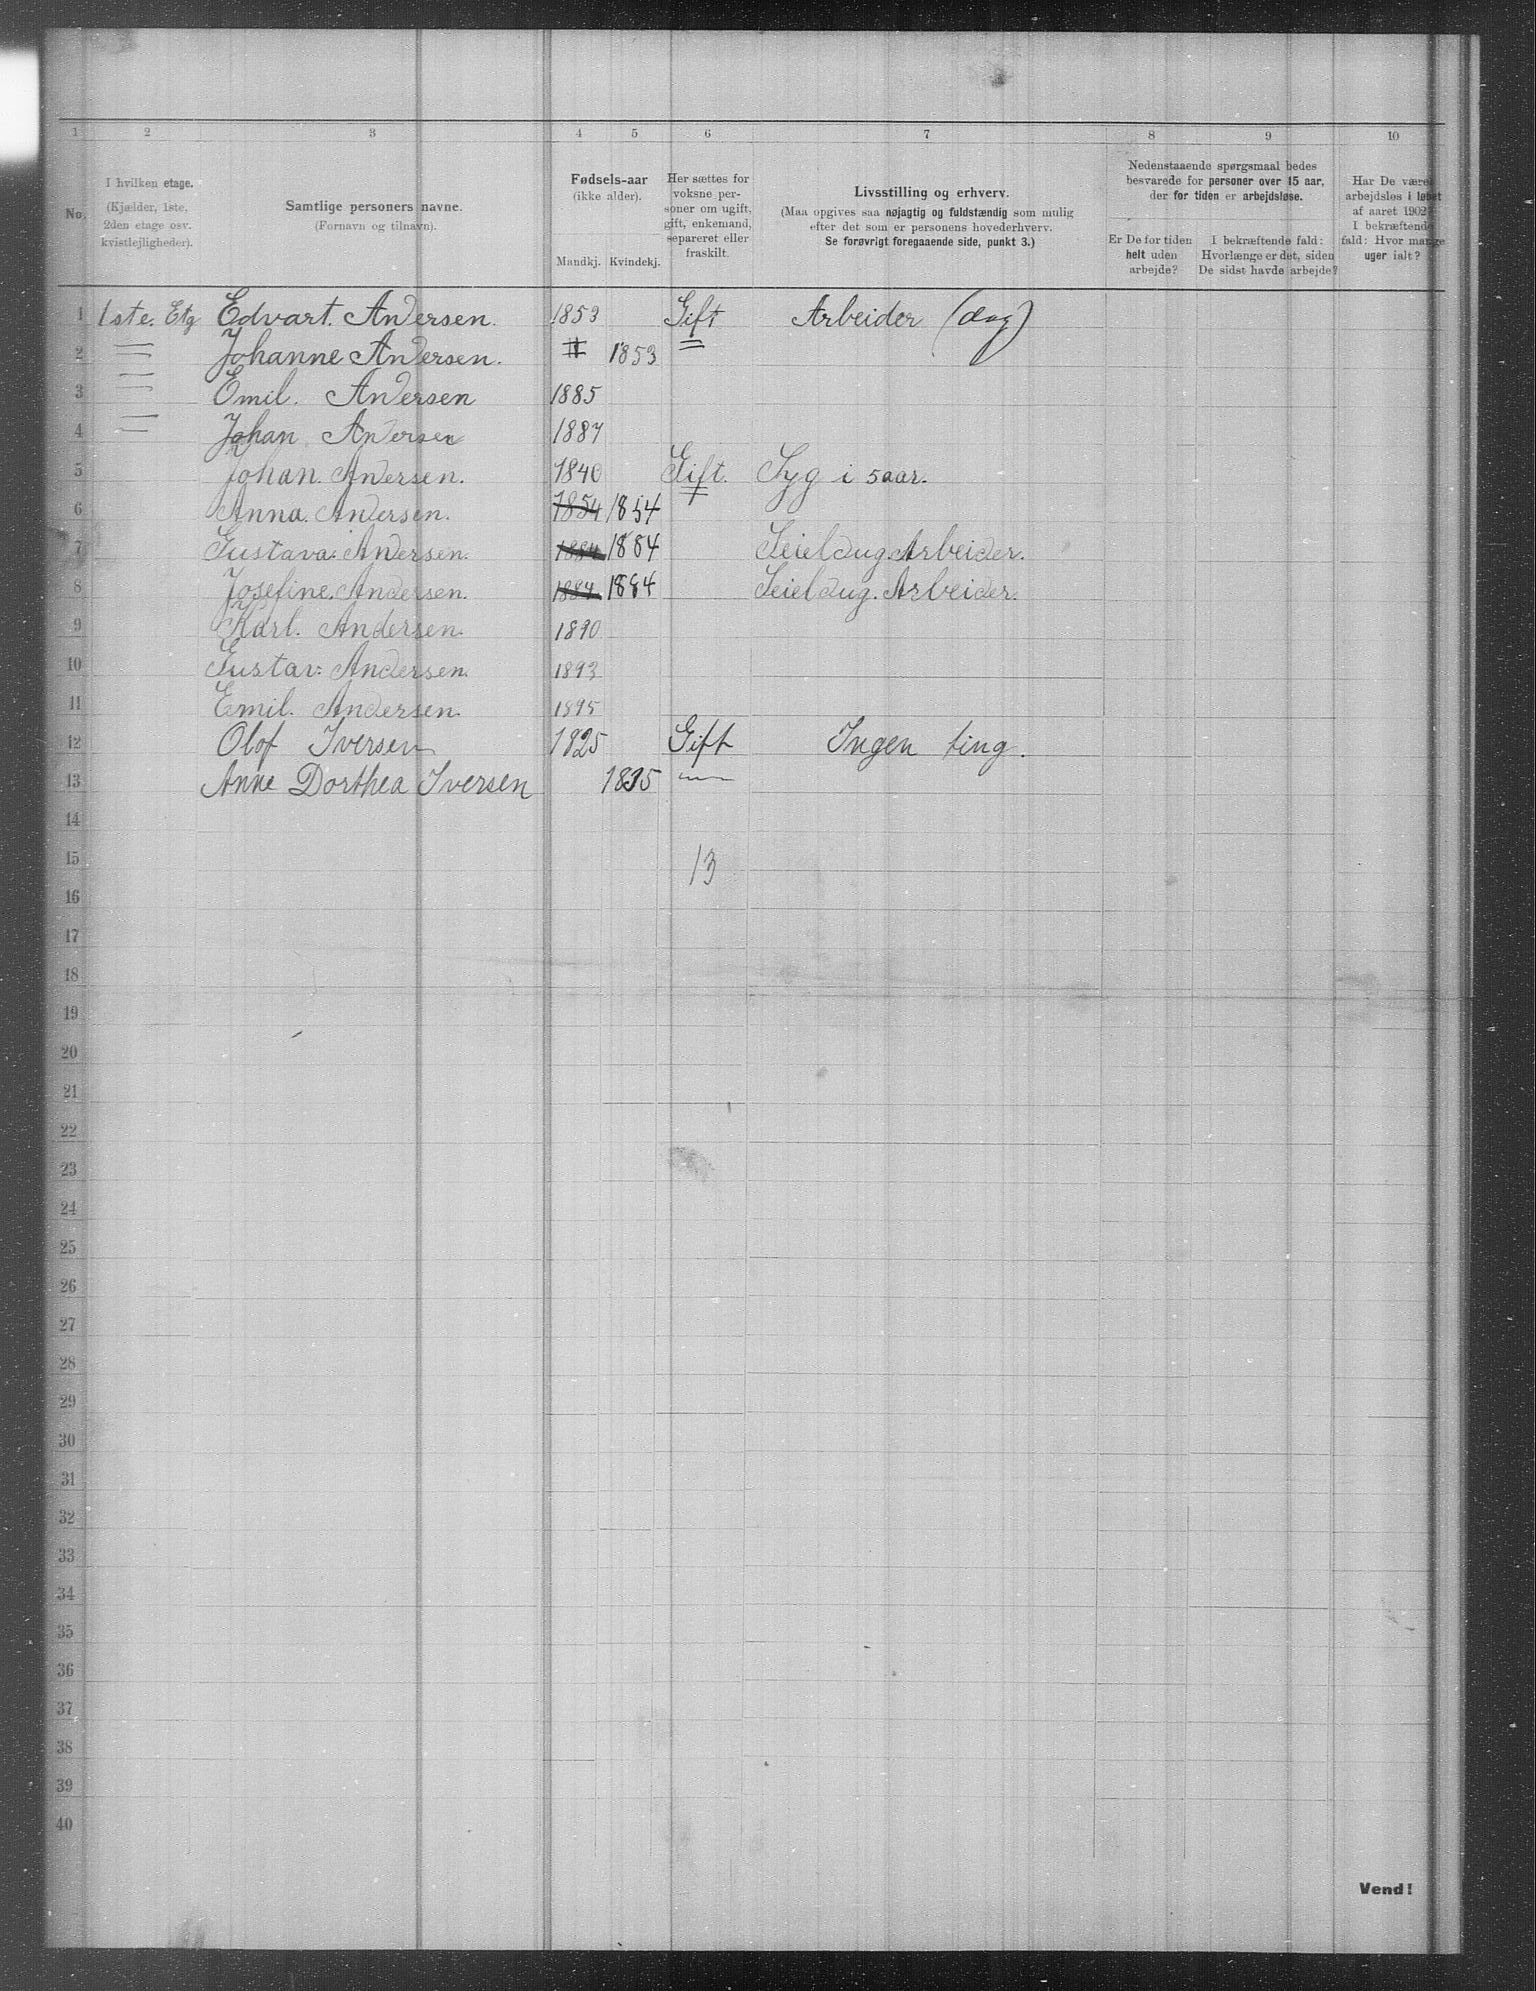 1 2 3 4 5 6 7 8 9 10
No. I hvilken etage. (Kjælder, 1ste, 2den etage osv. kvistlejligheder).
Samtlige personers navne. (Fornavn og tilnavn).
Fødsels-aar (ikke alder).
Mandkj. Kvindekj.
Her sættes for voksne personer om ugift, gift, enkemand, separeret eller fraskilt.
Livsstilling og erhverv.
(Maa opgives saa nøjagtig og fuldstændig som mulig efter det som er personens hovederhverv.
Se forøvrigt foregaaende side, punkt 3.)
Nedenstaaende spørgsmaal bedes besvarede for personer over 15 aar, der for tiden er arbejdsløse.
Er De for tiden helt uden arbejde?
I bekræftende fald: Hvorlænge er det, siden De sidst havde arbejde?
Har De været arbejdsløs i løbet af aaret 1902? I bekræftende fald: Hvor mange uger ialt?
1 1ste. Etg Edvart. Andersen. 1853 Gift Arbeider (dag)
2 = Johanne Andersen. 1853 =
3 = Emil. Andersen 1885
4 = Johan Andersen 1887
5 Johan. Andersen. 1840 Gift. Syg i 5 aar.
6 Anna. Andersen. 1854 1854 =
7 Gustava. Andersen. 1884 1884 Seieldug. Arbeider.
8 Josefine. Andersen. 1884 1884 Seieldug. Arbeider.
9 Karl. Andersen. 1890
10 Gustav: Andersen. 1893
11 Emil. Andersen. 1895
12 Olof Iversen 1825 Gift Ingen ting.
13 Anne Dorthea Iversen 1835 —
14
15 13
16
17
18
19
20
21
22
23
24
25
26
27
28
29
30
31
32
33
34
35
36
37
38
39
40
Vend!